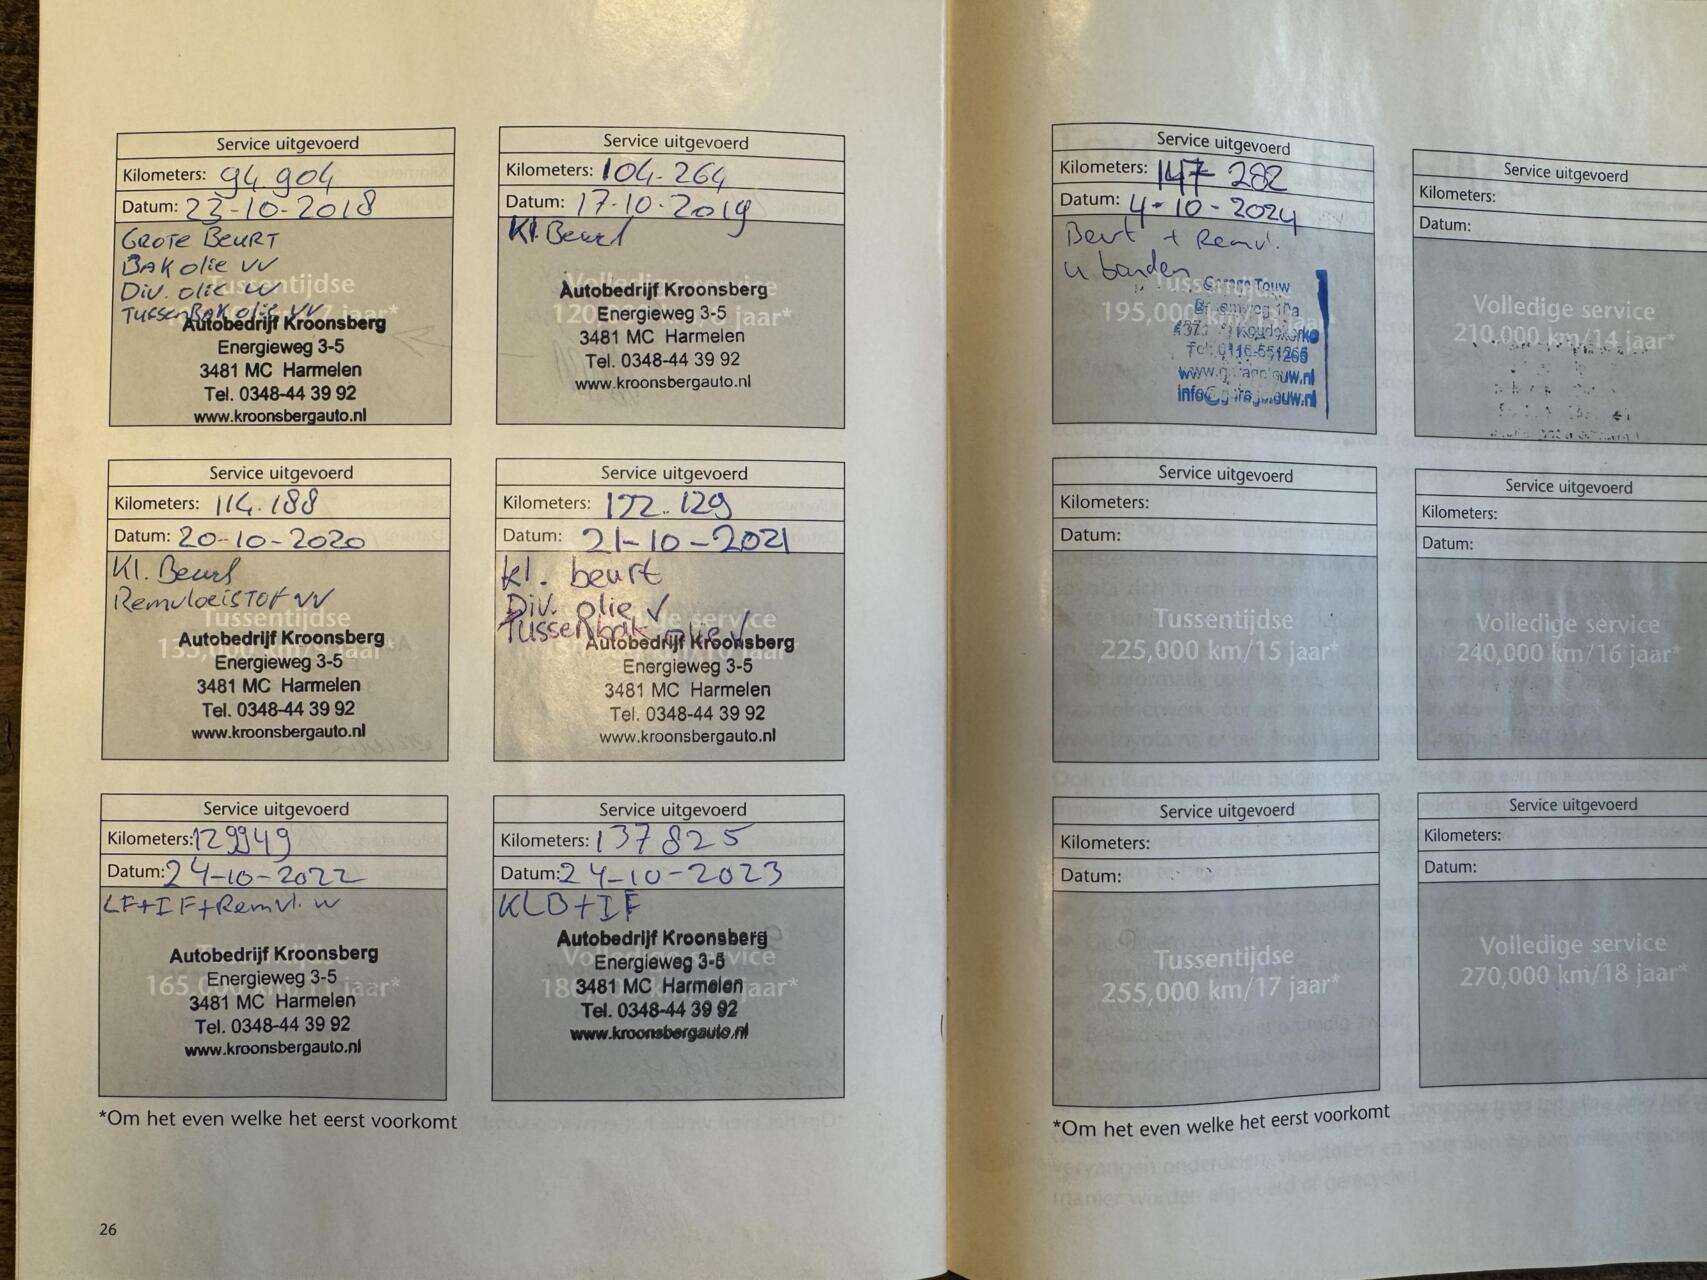 Service uitgevoerd
Kilometers: 94.904
Datum: 23-10-2018
GROTE BEURT
BAK olie VV
Div. olie VV
TUSSENBAK olie VV
Tussentijdse
7 jaar*
Autobedrijf Kroonsberg
Energieweg 3-5
3481 MC Harmelen
Tel. 0348-44 39 92
www.kroonsbergauto.nl
Service uitgevoerd
Kilometers: 104.264
Datum: 17-10-2019
Kl. Beurt
Volledige service
120 jaar*
Autobedrijf Kroonsberg
Energieweg 3-5
3481 MC Harmelen
Tel. 0348-44 39 92
www.kroonsbergauto.nl
Service uitgevoerd
Kilometers: 114.188
Datum: 20-10-2020
Kl. Beurt
Remvloeistof VV
Tussentijdse
135,000 km/9 jaar*
Autobedrijf Kroonsberg
Energieweg 3-5
3481 MC Harmelen
Tel. 0348-44 39 92
www.kroonsbergauto.nl
Service uitgevoerd
Kilometers: 122.129
Datum: 21-10-2021
kl. beurt
Div. olie ✓
Tussenbak olie ✓
service
Autobedrijf Kroonsberg
Energieweg 3-5
3481 MC Harmelen
Tel. 0348-44 39 92
www.kroonsbergauto.nl
Service uitgevoerd
Kilometers: 129949
Datum: 24-10-2022
LF+IF+Remvl. VV
165,000 km/11 jaar*
Autobedrijf Kroonsberg
Energieweg 3-5
3481 MC Harmelen
Tel. 0348-44 39 92
www.kroonsbergauto.nl
Service uitgevoerd
Kilometers: 137825
Datum: 24-10-2023
KLB+IF
Volledige service
180 jaar*
Autobedrijf Kroonsberg
Energieweg 3-5
3481 MC Harmelen
Tel. 0348-44 39 92
www.kroonsbergauto.nl
*Om het even welke het eerst voorkomt
26
Service uitgevoerd
Kilometers: 147 282
Datum: 4-10-2024
Beurt + Remvl.
4 banden
Tussentijdse
195,000 km/13 jaar*
Garage Touw
Tel: 0116-551265
Service uitgevoerd
Kilometers:
Datum:
Volledige service
210,000 km/14 jaar*
Service uitgevoerd
Kilometers:
Datum:
Tussentijdse
225,000 km/15 jaar*
Service uitgevoerd
Kilometers:
Datum:
Volledige service
240,000 km/16 jaar*
Service uitgevoerd
Kilometers:
Datum:
Tussentijdse
255,000 km/17 jaar*
Service uitgevoerd
Kilometers:
Datum:
Volledige service
270,000 km/18 jaar*
*Om het even welke het eerst voorkomt